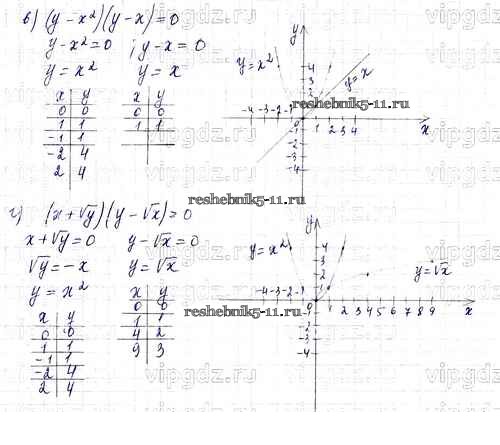 в) (y - x²)(y - x) = 0
y - x² = 0 ; y - x = 0
y = x² y = x
x y
0 0
1 1
-1 1
-2 4
2 4
x y
0 0
1 1
y
y = x²
y = x
4
3
2
-4 -3 -2 -1
0
1 2 3 4
x
-1
-2
-3
-4
reshebnik5-11.ru
vipgdz.ru
reshebnik5-11.ru
г) (x + √y)(y - √x) = 0
x + √y = 0 y - √x = 0
√y = -x y = √x
y = x²
x y
0 0
1 1
-1 1
-2 4
2 4
x y
0 0
1 1
4 2
9 3
y
y = x²
y = √x
4
3
2
1
-4 -3 -2 -1
0
1 2 3 4 5 6 7 8 9
x
-1
-2
-3
-4
reshebnik5-11.ru
vipgdz.ru